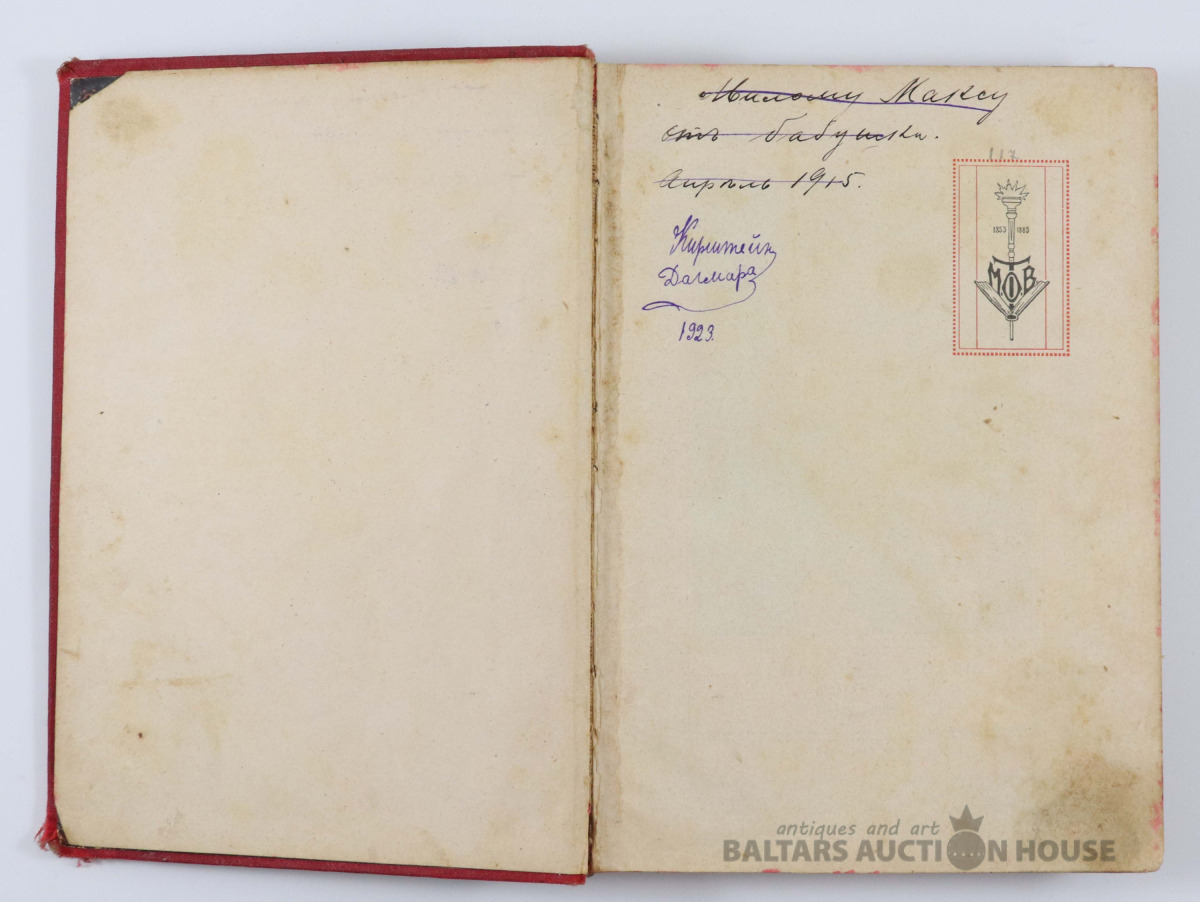 Милому Максу
отъ бабушки.
Апрѣль 1915.
117
Кирштейн
Дагмара
1923.
1853 1883
М.О.В.
antiques and art
BALTARS AUCTION HOUSE